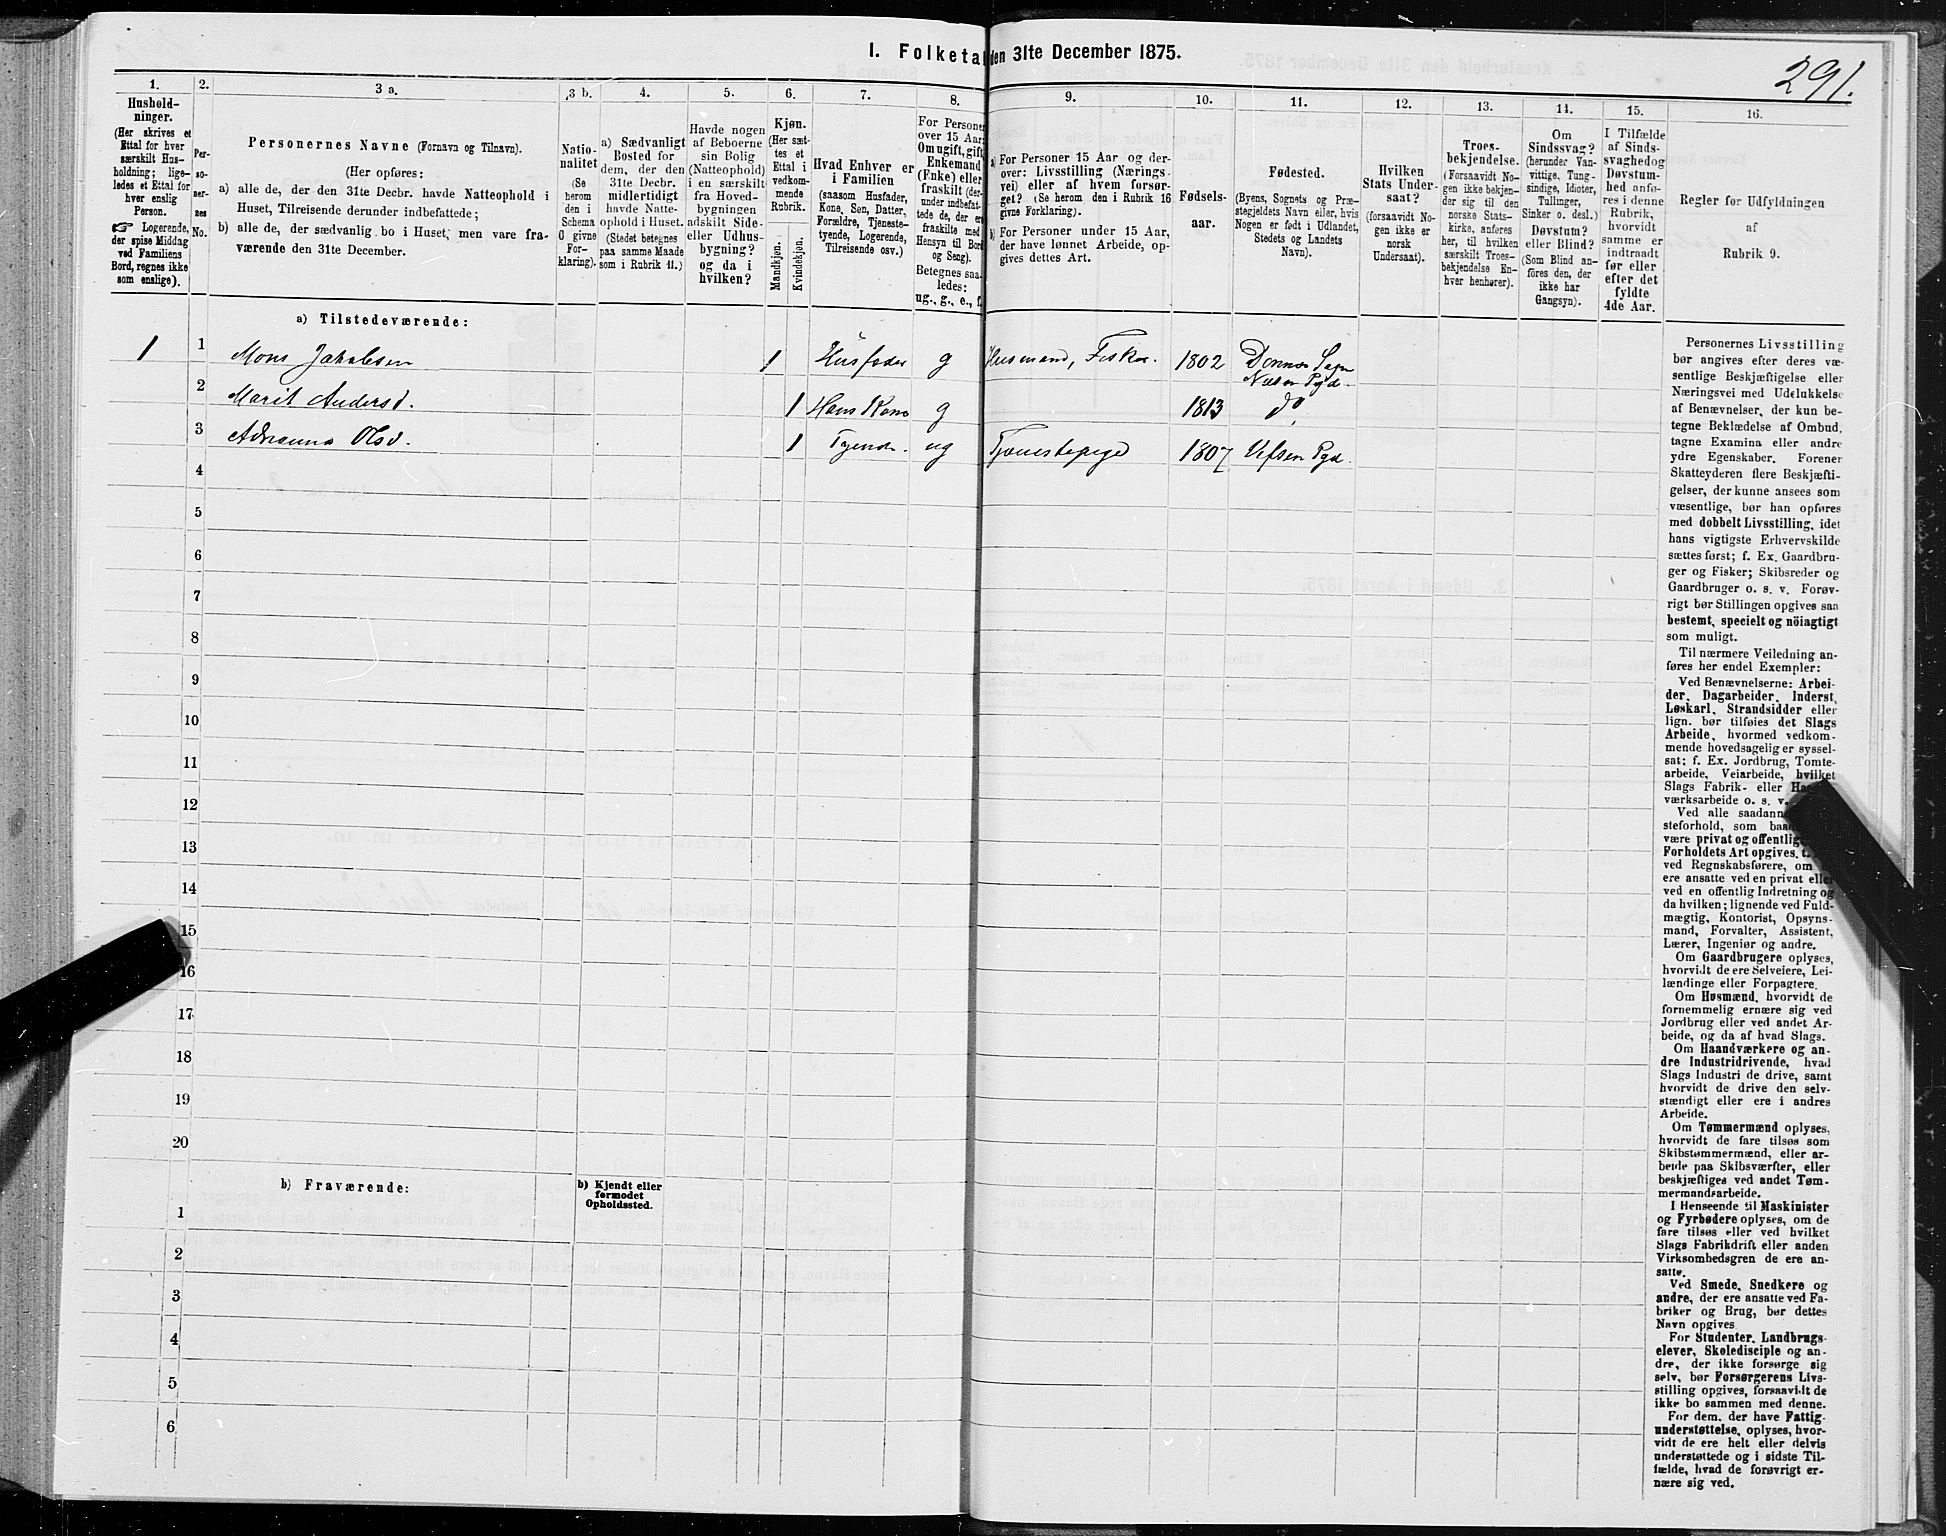 I. Folketal den 31te December 1875.
291.
1.
Hushold-
ninger.
(Her skrives et
Ettal for hver
særskilt Hus-
holdning; lige-
ledes et Ettal for
hver enslig
Person.
☞ Logerende,
der spise Middag
ved Familiens
Bord, regnes ikke
som enslige).
2.
Per-
so-
ner-
nes
No.
3 a.
Personernes Navne (Fornavn og Tilnavn).
(Her opføres:
a) alle de, der den 31te Decbr. havde Natteophold i
Huset, Tilreisende derunder indbefattede;
b) alle de, der sædvanlig bo i Huset, men vare fra-
værende den 31te December.
3 b.
Natio-
nalitet
(Se
herom
den i
Schema
O givne
For-
klaring).
4.
a) Sædvanligt
Bosted for
dem, der den
31te Decbr.
midlertidigt
havde Natte-
ophold i Huset.
(Stedet betegnes
paa samme Maade
som i Rubrik 11.)
5.
Havde nogen
af Beboerne
sin Bolig
(Natteophold)
i en særskilt
fra Hoved-
bygningen
adskilt Side-
eller Udhus-
bygning?
og da i
hvilken?
6.
Kjøn.
(Her sæt-
tes et
Ettal i
vedkom-
mende
Rubrik.
Mandkjøn.
Kvindekjøn.
7.
Hvad Enhver er
i Familien
(saasom Husfader,
Kone, Søn, Datter,
Forældre, Tjeneste-
tyende, Logerende,
Tilreisende osv.)
8.
For Personer
over 15 Aar:
Om ugift, gift,
Enkemand
(Enke) eller
fraskilt (der-
under indbefat-
tede de, der ere
fraskilte med
Hensyn til Bord
og Seng).
Betegnes saa-
ledes:
ug., g., e., f.
9.
a) For Personer 15 Aar og der-
over: Livsstilling (Nærings-
vei) eller af hvem forsør-
get? (Se herom den i Rubrik 16
givne Forklaring).
b) For Personer under 15 Aar,
der have lønnet Arbeide, op-
gives dettes Art.
10.
Fødsels-
aar.
11.
Fødested.
(Byens, Sognets og Præ-
stegjeldets Navn eller, hvis
Nogen er født i Udlandet,
Stedets og Landets
Navn).
12.
Hvilken
Stats Under-
saat?
(forsaavidt No-
gen ikke er
norsk
Undersaat).
13.
Troes-
bekjendelse.
(Forsaavidt No-
gen ikke bekjen-
der sig til den
norske Stats-
kirke, anføres
her, til hvilken
særskilt Troes-
bekjendelse En-
hver henhører).
14.
Om
Sindssvag?
(herunder Van-
vittige, Tung-
sindige, Idioter,
Tullinger,
Sinker o. desl.)
Døvstum?
eller Blind?
(Som Blind an-
føres den, der
ikke har
Gangsyn).
15.
I Tilfælde
af Sinds-
svaghed og
Døvstum-
hed anfø-
res i denne
Rubrik,
hvorvidt
samme er
indtraadt
før eller
efter det
fyldte
4de Aar.
16.
Regler for Udfyldningen
af
Rubrik 9.
a) Tilstedeværende:
1 1 Mons Jakobsen 1 Husfader g Husmand, Fisker. 1802 Dønnes Sogn
Nesne Pgd.
2 Marit Andersd. 1 Hans Kone g 1813 do
3 Adrianna Olsd. 1 Tyende. ug Tjenestepige 1807 Vefsen Pgd.
4
5
6
7
8
9
10
11
12
13
14
15
16
17
18
19
20
b) Fraværende:
b) Kjendt eller
formodet
Opholdssted.
1
2
3
4
5
6
Personernes Livsstilling
bør angives efter deres væ-
sentlige Beskjæftigelse eller
Næringsvei med Udelukkelse
af Benævnelser, der kun be-
tegne Beklædelse af Ombud,
tagne Examina eller andre
ydre Egenskaber. Forener
Skatteyderen flere Beskjæfti-
gelser, der kunne ansees som
væsentlige, bør han opføres
med dobbelt Livsstilling, idet
hans vigtigste Erhvervskilde
sættes først; f. Ex. Gaardbru-
ger og Fisker; Skibsreder og
Gaardbruger o. s. v. Forøv-
rigt bør Stillingen opgives saa
bestemt, specielt og nöiagtigt
som muligt.
Til nærmere Veiledning an-
føres her endel Exempler:
Ved Benævnelserne: Arbei-
der, Dagarbeider, Inderst,
Løskarl, Strandsidder eller
lign. bør tilføies det Slags
Arbeide, hvormed vedkom-
mende hovedsagelig er syssel-
sat; f. Ex. Jordbrug, Tomte-
arbeide, Veiarbeide, hvilket
Slags Fabrik- eller
værksarbeide o. s. v.
Ved alle saadan
steforhold, som
være privat og offentlig
Forholdets Art opgives,
ved Regnskabsførere, om
ere ansatte ved en privat eller
ved en offentlig Indretning og
da hvilken; lignende ved Fuld-
mægtig, Kontorist, Opsyns-
mand, Forvalter, Assistent,
Lærer, Ingeniør og andre.
Om Gaardbrugere oplyses,
hvorvidt de ere Selveiere, Lei-
lændinge eller Forpagtere.
Om Husmænd, hvorvidt de
fornemmelig ernære sig ved
Jordbrug eller ved andet Ar-
beide, og da af hvad Slags.
Om Haandværkere og an-
dre Industridrivende, hvad
Slags Industri de drive, samt
hvorvidt de drive den selv-
stændigt eller ere i andres
Arbeide.
Om Tømmermænd oplyses,
hvorvidt de fare tilsøs som
Skibstømmermænd, eller ar-
beide paa Skibsværfter, eller
beskjæftiges ved andet Tøm-
mermandsarbeide.
I Henseende til Maskinister
og Fyrbødere oplyses, om de
fare tilsøs eller ved hvilket
Slags Fabrikdrift eller anden
Virksomhedsgren de ere an-
satte.
Ved Smede, Snedkere og
andre, der ere ansatte ved Fa-
briker og Brug, bør dettes
Navn opgives.
For Studenter, Landbrugs-
elever, Skoledisciple og an-
dre, der ikke forsørge sig
selv, bør Forsørgerens Livs-
stilling opgives, forsaavidt de
ikke bo sammen med denne.
For dem, der have Fattig-
understøttelse, oplyses, hvor-
vidt de ere helt eller delvis
understøttede og i sidste Til-
fælde, hvad de forøvrigt er-
nære sig ved.